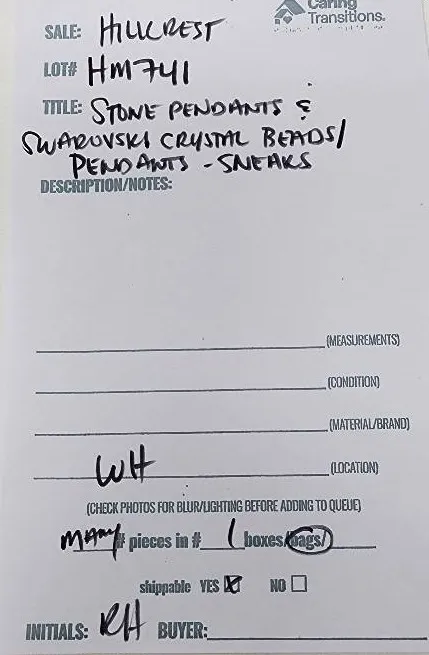 Caring
Transitions.
SALE: HILLCREST
LOT# HM741
TITLE: STONE PENDANTS &
SWAROVSKI CRYSTAL BEADS/
PENDANTS - SNEAKS
DESCRIPTION/NOTES:
(MEASUREMENTS)
(CONDITION)
(MATERIAL/BRAND)
WH (LOCATION)
(CHECK PHOTOS FOR BLUR/LIGHTING BEFORE ADDING TO QUEUE)
MANY# pieces in # 1 boxes/bags/
shippable YES ☒ NO ☐
INITIALS: RH BUYER: